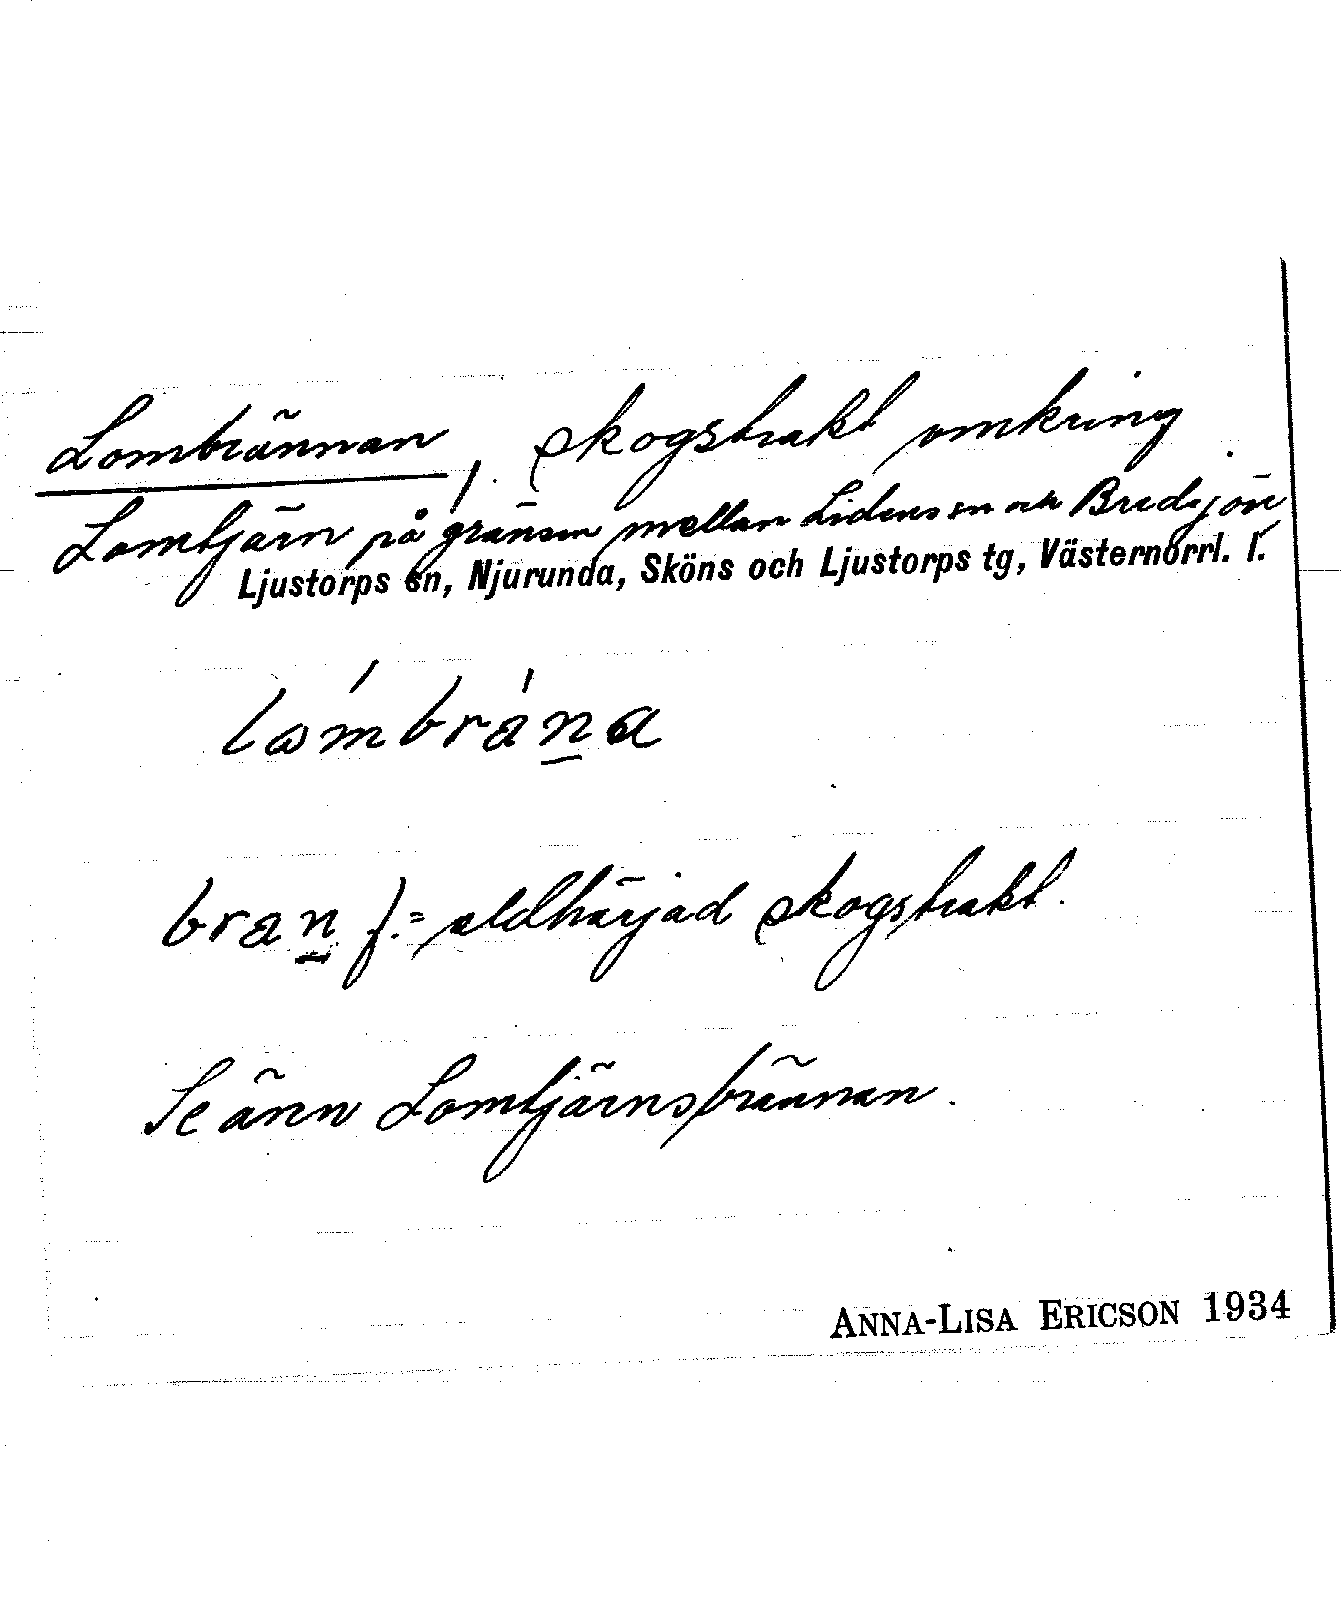 Lombrännan, skogstrakt omkring
Lomtjärn på gränsen mellan Lidens sn och Bredsjön
Ljustorps sn, Njurunda, Sköns och Ljustorps tg, Västernorrl. l.
lómbrána
bran f. = eldhärjad skogstrakt.
Se änn Lomtjärnsbrännan.
ANNA-LISA ERICSON 1934